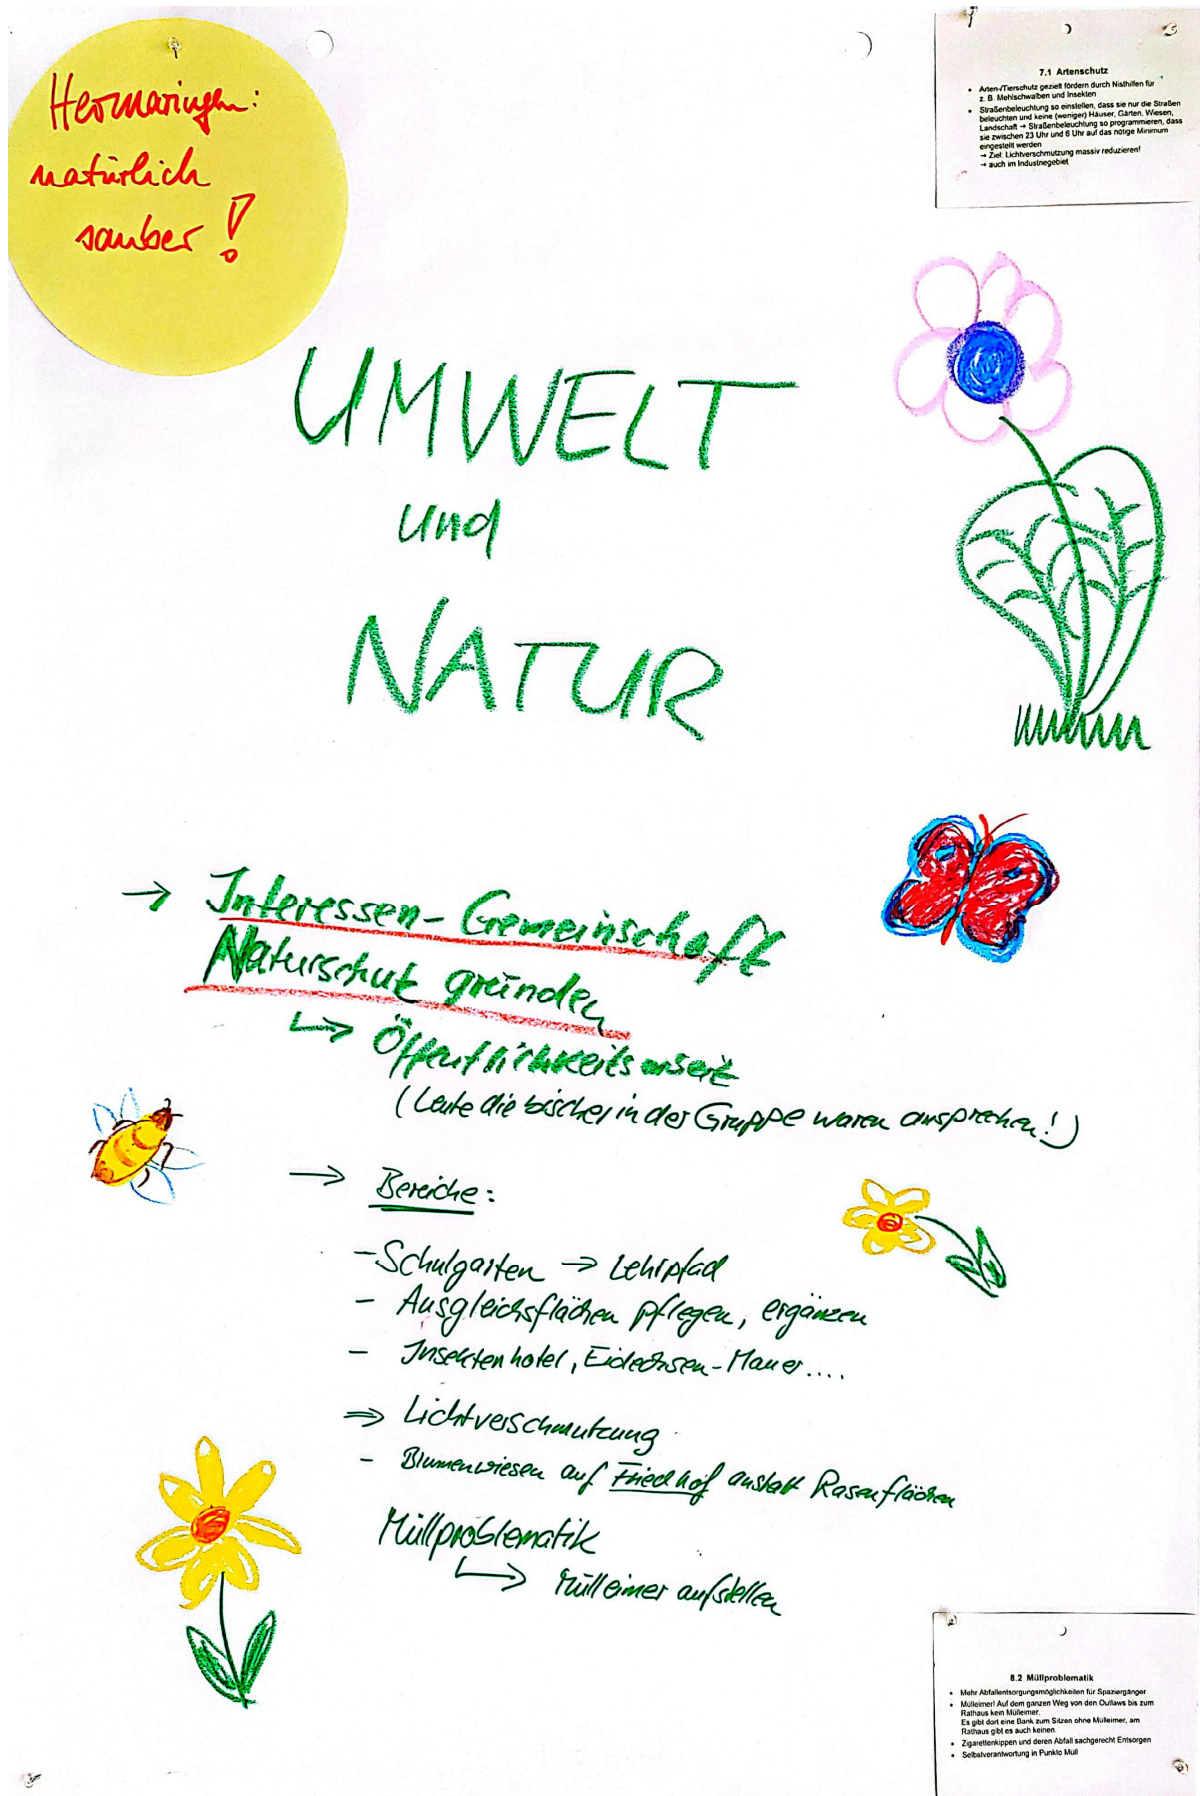 Hermaringen:
natürlich
sauber!
7.1 Artenschutz
• Arten-/Tierschutz gezielt fördern durch Nisthilfen für
z. B. Mehlschwalben und Insekten
• Straßenbeleuchtung so einstellen, dass sie nur die Straßen
beleuchten und keine (weniger) Häuser, Gärten, Wiesen,
Landschaft → Straßenbeleuchtung so programmieren, dass
sie zwischen 23 Uhr und 6 Uhr auf das nötige Minimum
eingestellt werden
→ Ziel: Lichtverschmutzung massiv reduzieren!
→ auch im Industriegebiet
UMWELT
und
NATUR
→ Interessen-Gemeinschaft
Naturschutz gründen
↳ Öffentlichkeitsarbeit
(Leute die bischer in der Gruppe waren ansprechen!)
→ Bereiche:
- Schulgarten → Lehrpfad
- Ausgleichsflächen pflegen, ergänzen
- Insektenhotel, Eidechsen-Mauer....
⇒ Lichtverschmutzung
- Blumenwiesen auf Friedhof anstatt Rasenflächen
Müllproblematik
↳ Mülleimer aufstellen
8.2 Müllproblematik
• Mehr Abfallentsorgungsmöglichkeiten für Spaziergänger
• Mülleimer! Auf dem ganzen Weg von den Outlaws bis zum
Rathaus kein Mülleimer.
Es gibt dort eine Bank zum Sitzen ohne Mülleimer, am
Rathaus gibt es auch keinen.
• Zigarettenkippen und deren Abfall sachgerecht Entsorgen
• Selbstverantwortung in Punkto Müll